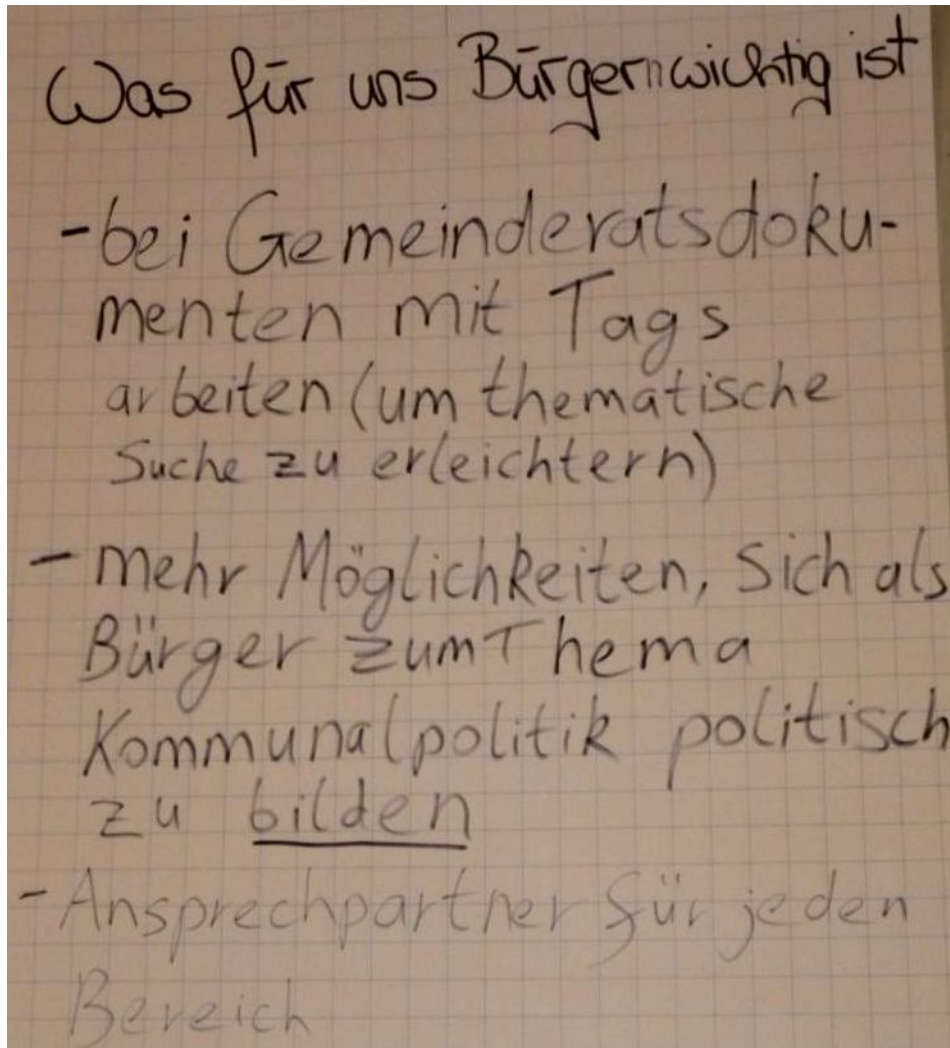 Was für uns Bürgern wichtig ist
- bei Gemeinderatsdoku-
menten mit Tags
arbeiten (um thematische
Suche zu erleichtern)
- mehr Möglichkeiten, sich als
Bürger zum Thema
Kommunalpolitik politisch
zu bilden
- Ansprechpartner für jeden
Bereich